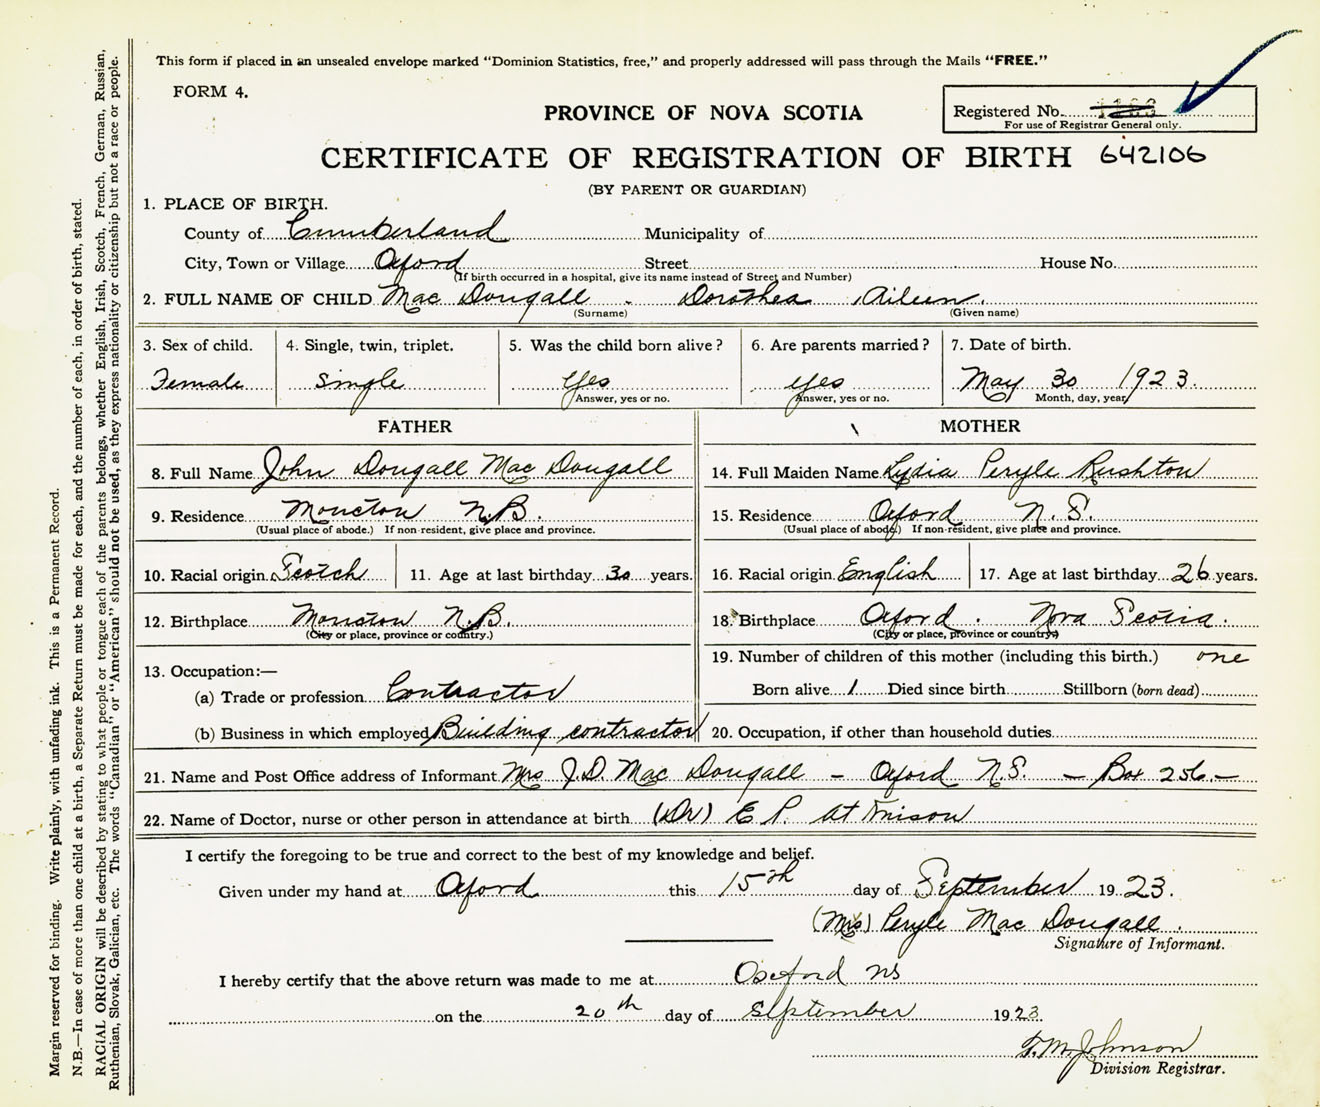 This form if placed in an unsealed envelope marked "Dominion Statistics, free," and properly addressed will pass through the Mails "FREE."
FORM 4.
PROVINCE OF NOVA SCOTIA
Registered No.
For use of Registrar General only.
CERTIFICATE OF REGISTRATION OF BIRTH 642106
(BY PARENT OR GUARDIAN)
1. PLACE OF BIRTH.
County of Cumberland Municipality of
City, Town or Village Oxford Street House No.
(If birth occurred in a hospital, give its name instead of Street and Number)
2. FULL NAME OF CHILD Mac Dougall - Dorothea Aileen.
(Surname) (Given name)
3. Sex of child. 4. Single, twin, triplet. 5. Was the child born alive? 6. Are parents married? 7. Date of birth.
Female Single Yes yes May 30 1923.
Answer, yes or no. Answer, yes or no. Month, day, year
FATHER MOTHER
8. Full Name John Dougall Mac Dougall 14. Full Maiden Name Lydia Peryle Rushton
9. Residence Moncton N.B. 15. Residence Oxford N.S.
(Usual place of abode.) If non-resident, give place and province. (Usual place of abode.) If non-resident, give place and province.
10. Racial origin Scotch 11. Age at last birthday 30 years. 16. Racial origin English 17. Age at last birthday 26 years.
12. Birthplace Moncton N.B. 18. Birthplace Oxford. Nova Scotia.
(City or place, province or country.) (City or place, province or country)
13. Occupation:— 19. Number of children of this mother (including this birth.) one
(a) Trade or profession Contractor Born alive 1 Died since birth Stillborn (born dead)
(b) Business in which employed Building contractor 20. Occupation, if other than household duties
21. Name and Post Office address of Informant Mrs J.D. Mac Dougall - Oxford N.S. - Box 256 -
22. Name of Doctor, nurse or other person in attendance at birth (Dr) E P. Atkinson
I certify the foregoing to be true and correct to the best of my knowledge and belief.
Given under my hand at Oxford this 15th day of September 1923.
(Mrs) Peryle Mac Dougall.
Signature of Informant.
I hereby certify that the above return was made to me at Oxford NS
on the 20th day of September 1923
T. M. Johnson
Division Registrar.
Margin reserved for binding. Write plainly, with unfading ink. This is a Permanent Record.
N.B.—In case of more than one child at a birth, a Separate Return must be made for each, and the number of each, in order of birth, stated.
RACIAL ORIGIN will be described by stating to what people or tongue each of the parents belongs, whether English, Irish, Scotch, French, German, Russian,
Ruthenian, Slovak, Galician, etc. The words "Canadian" or "American" should not be used, as they express nationality or citizenship but not a race or people.